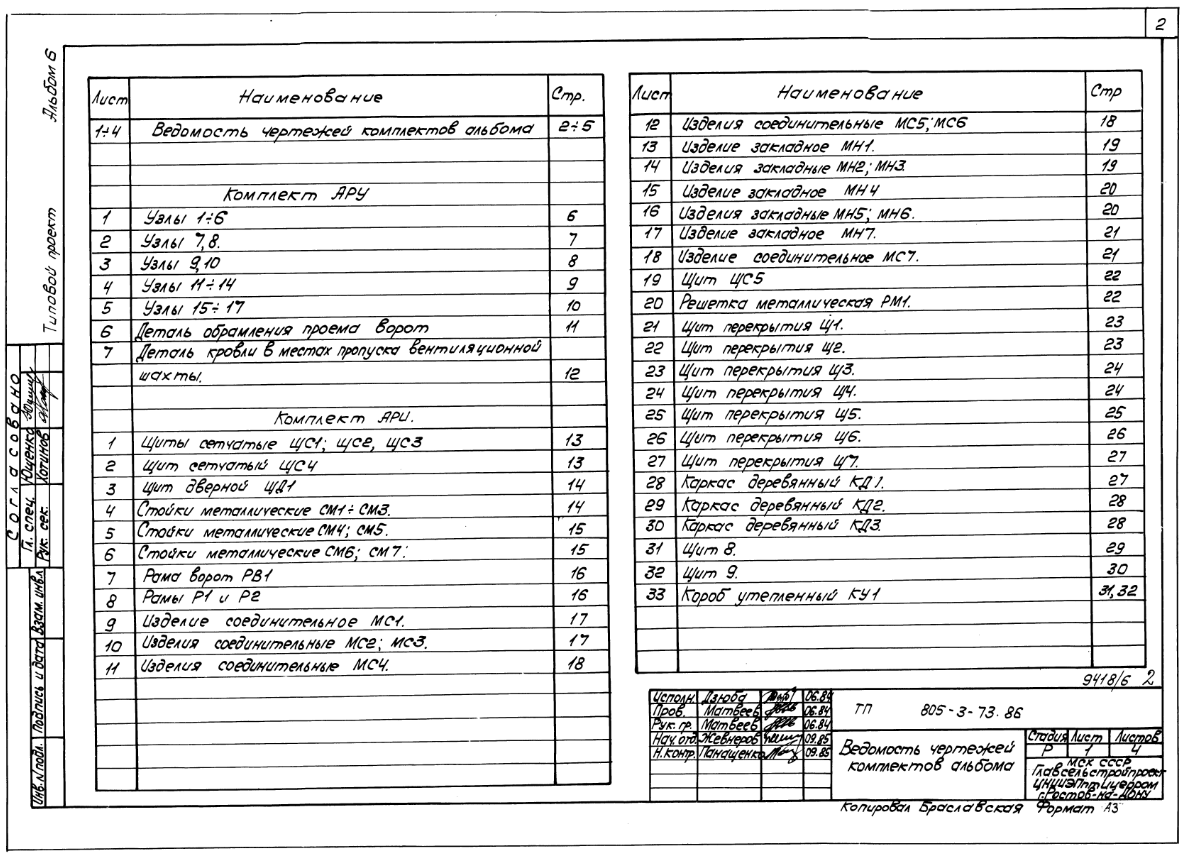 2
Альбом 6
Типовой проект
Лист Наименование Стр.
1÷4 Ведомость чертежей комплектов альбома 2÷5
Комплект АРУ
1 Узлы 1÷6 6
2 Узлы 7,8. 7
3 Узлы 9,10 8
4 Узлы 11÷14 9
5 Узлы 15÷17 10
6 Деталь обрамления проема ворот 11
7 Деталь кровли в местах пропуска вентиляционной
шахты. 12
Комплект АРИ.
1 Щиты сетчатые ЩС1; ЩС2, ЩС3 13
2 Щит сетчатый ЩС4 13
3 Щит дверной ЩД1 14
4 Стойки металлические СМ1÷СМ3. 14
5 Стойки металлические СМ4; СМ5. 15
6 Стойки металлические СМ6; СМ7. 15
7 Рама ворот РВ1 16
8 Рамы Р1 и Р2 16
9 Изделие соединительное МС1. 17
10 Изделия соединительные МС2; МС3. 17
11 Изделия соединительные МС4. 18
Лист Наименование Стр
12 Изделия соединительные МС5; МС6 18
13 Изделие закладное МН1. 19
14 Изделия закладные МН2; МН3. 19
15 Изделие закладное МН4 20
16 Изделия закладные МН5; МН6. 20
17 Изделие закладное МН7. 21
18 Изделие соединительное МС7. 21
19 Щит ЩС5 22
20 Решетка металлическая РМ1. 22
21 Щит перекрытия Щ1. 23
22 Щит перекрытия Щ2. 23
23 Щит перекрытия Щ3. 24
24 Щит перекрытия Щ4. 24
25 Щит перекрытия Щ5. 25
26 Щит перекрытия Щ6. 26
27 Щит перекрытия Щ7. 27
28 Каркас деревянный КД1. 27
29 Каркас деревянный КД2. 28
30 Каркас деревянный КД3. 28
31 Щит 8. 29
32 Щит 9. 30
33 Короб утепленный КУ1 31,32
Согласовано
Гл. спец. Ющенко
Рук. сек. Хатинов
Инв.№подл. Подпись и дата Взам. инв.№
9418/6 2
Исполн. Дзюба 06.84
Пров. Матвеев 06.84
Рук. гр. Матвеев 06.84
Нач. отд. Жевнеров 09.85
Н.контр. Панащенко 09.85
ТП 805-3-73.86
Ведомость чертежей
комплектов альбома
Стадия Лист Листов
Р 1 4
МСХ СССР
Главсельстройпроект
г.Ростов-на-Дону
Копировал Браславская Формат А3